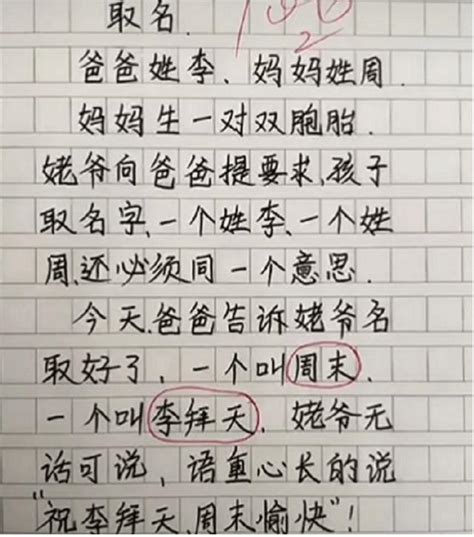 取名.
爸爸姓李、妈妈姓周.
妈妈生一对双胞胎.
姥爷向爸爸提要求,孩子
取名字、一个姓李、一个姓
周,还必须同一个意思.
今天.爸爸告诉姥爷名
取好了，一个叫周末.
一个叫李拜天.姥爷无
话可说，语重心长的说
“祝李拜天,周末愉快”!